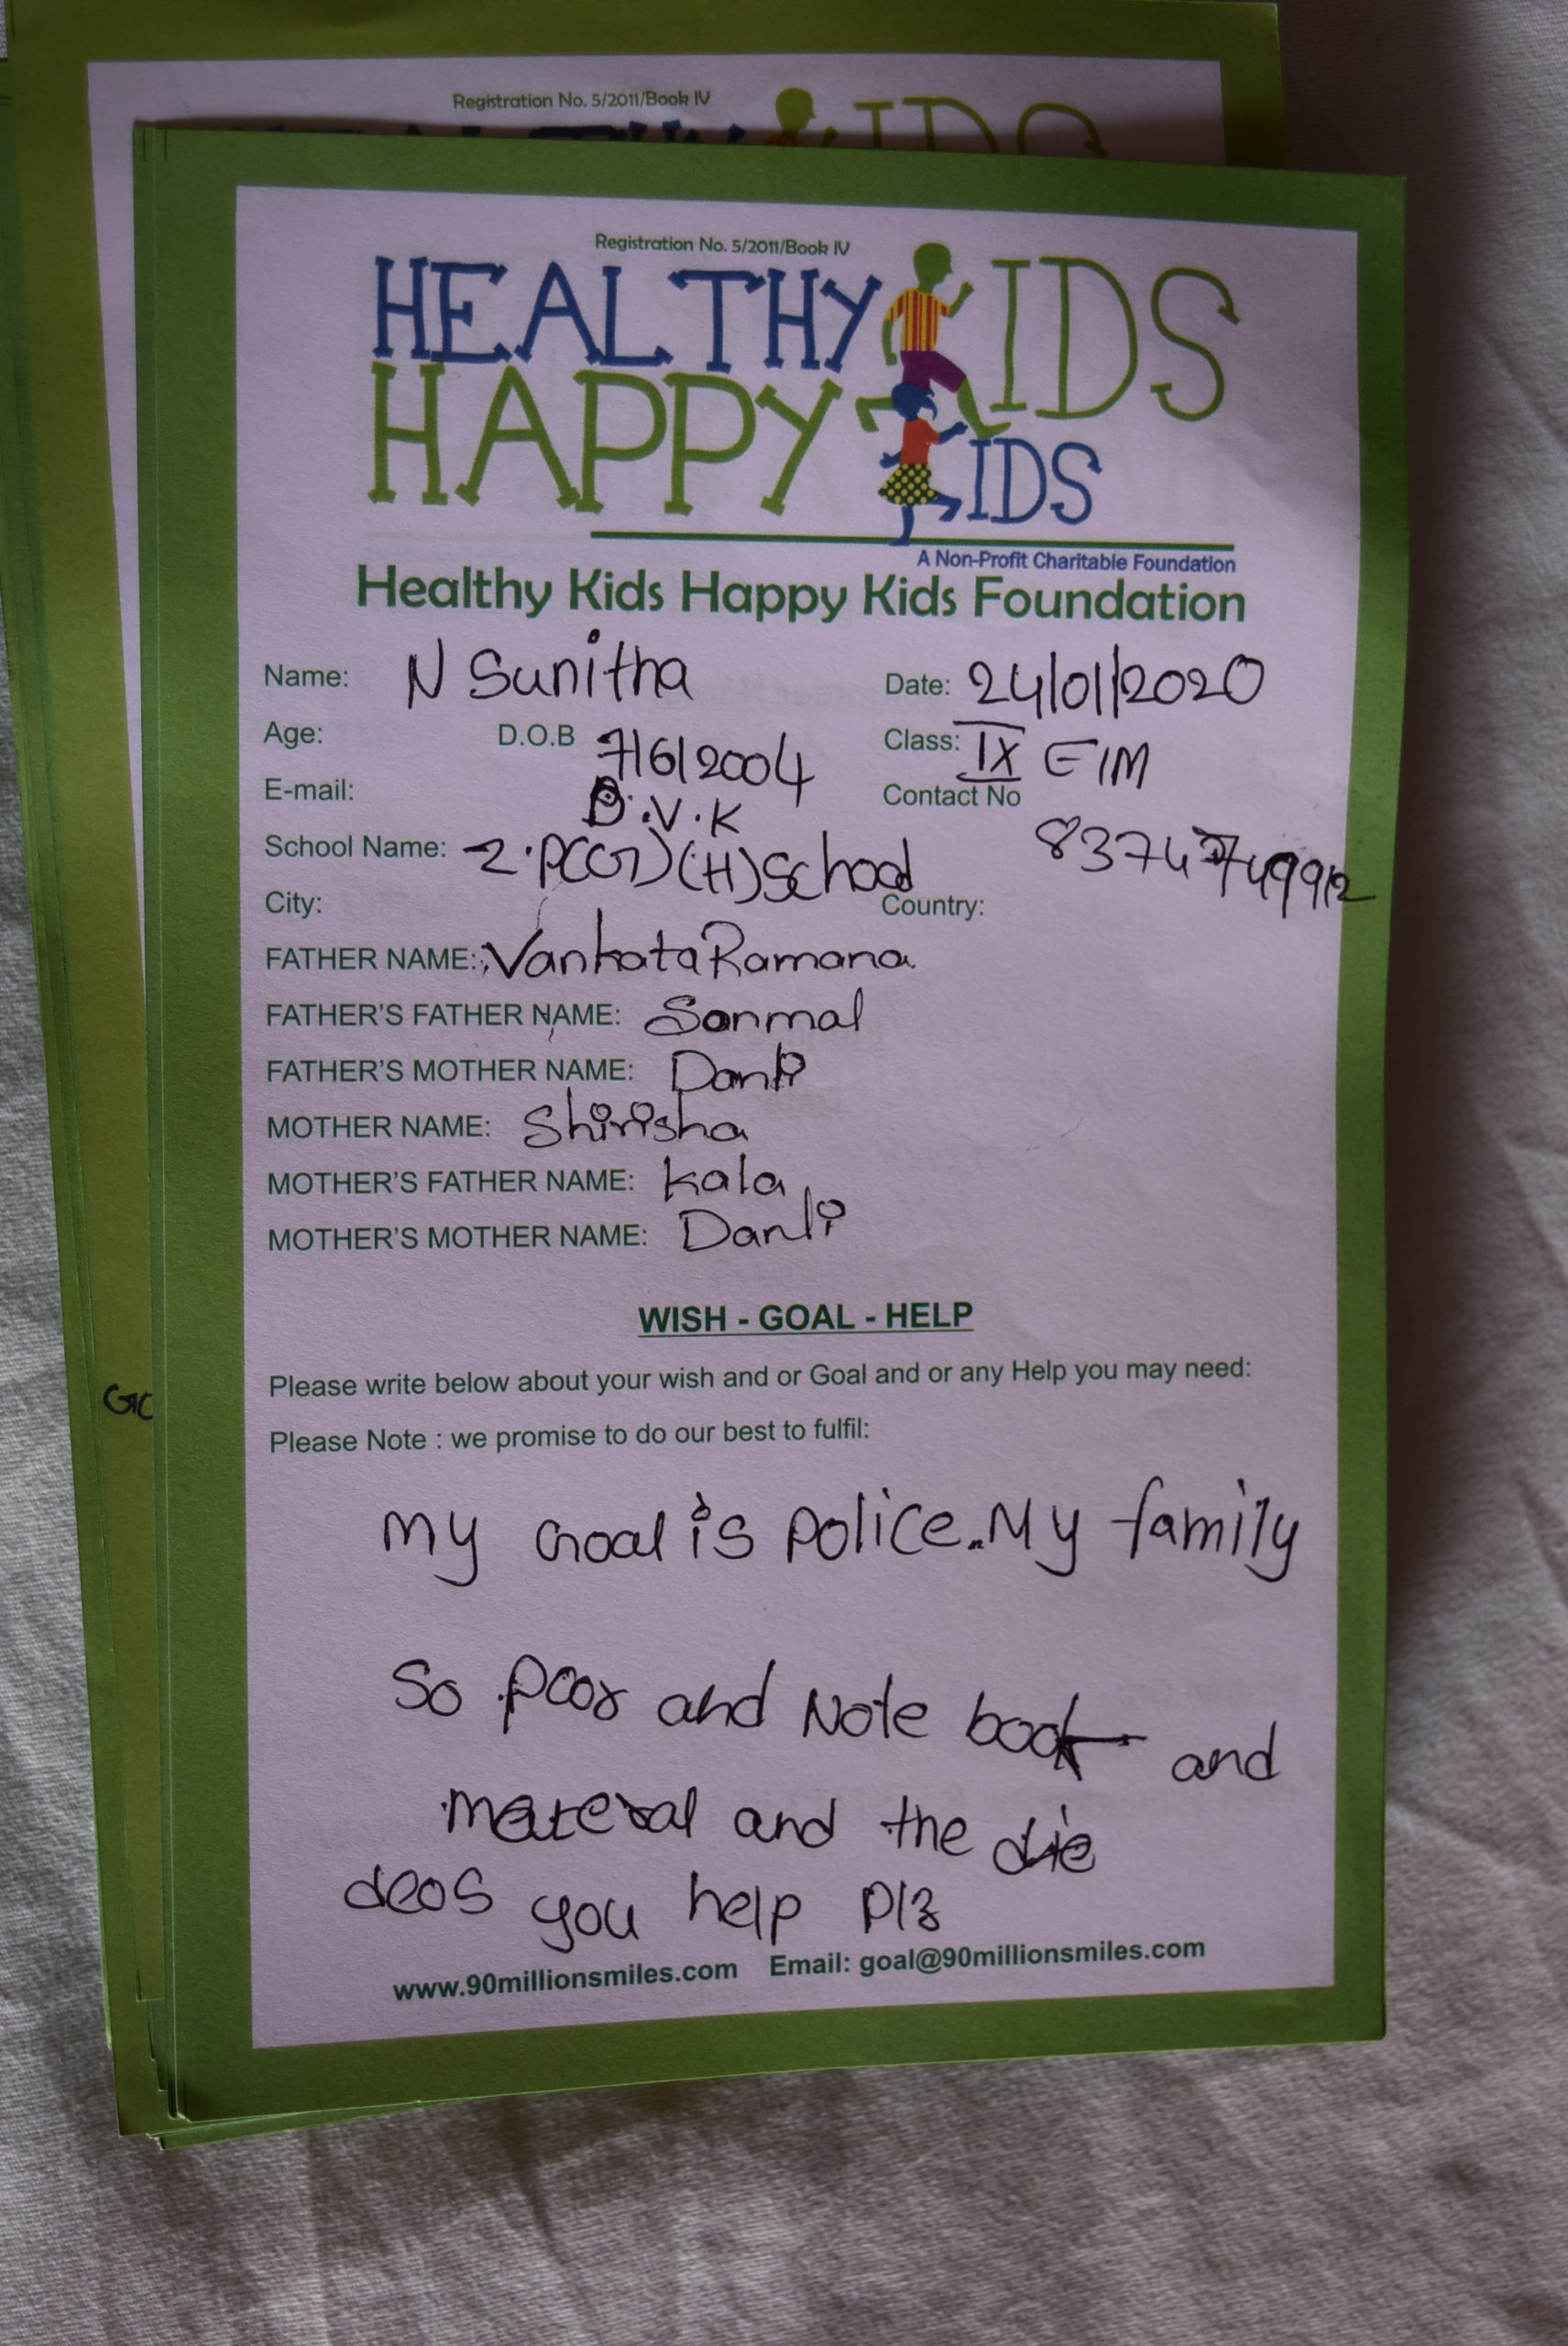 Registration No. 5/2011/Book IV
Registration No. 5/2011/Book IV
HEALTHY KIDS
HAPPY KIDS
A Non-Profit Charitable Foundation
Healthy Kids Happy Kids Foundation
Name: N Sunitha Date: 24/01/2020
Age: D.O.B 7/6/2004 Class: IX E/M
E-mail: B.V.K Contact No
School Name: Z.P(G)(H)School
City: Country:
FATHER NAME: Vankata Ramana
FATHER'S FATHER NAME: Sonmal
FATHER'S MOTHER NAME: Danli
MOTHER NAME: Shirisha
MOTHER'S FATHER NAME: Kala
MOTHER'S MOTHER NAME: Danli
WISH - GOAL - HELP
Please write below about your wish and or Goal and or any Help you may need:
Please Note : we promise to do our best to fulfil:
my Goal is police. My family
So poor and Note book and
materal and the
deos you help plz
www.90millionsmiles.com Email: goal@90millionsmiles.com